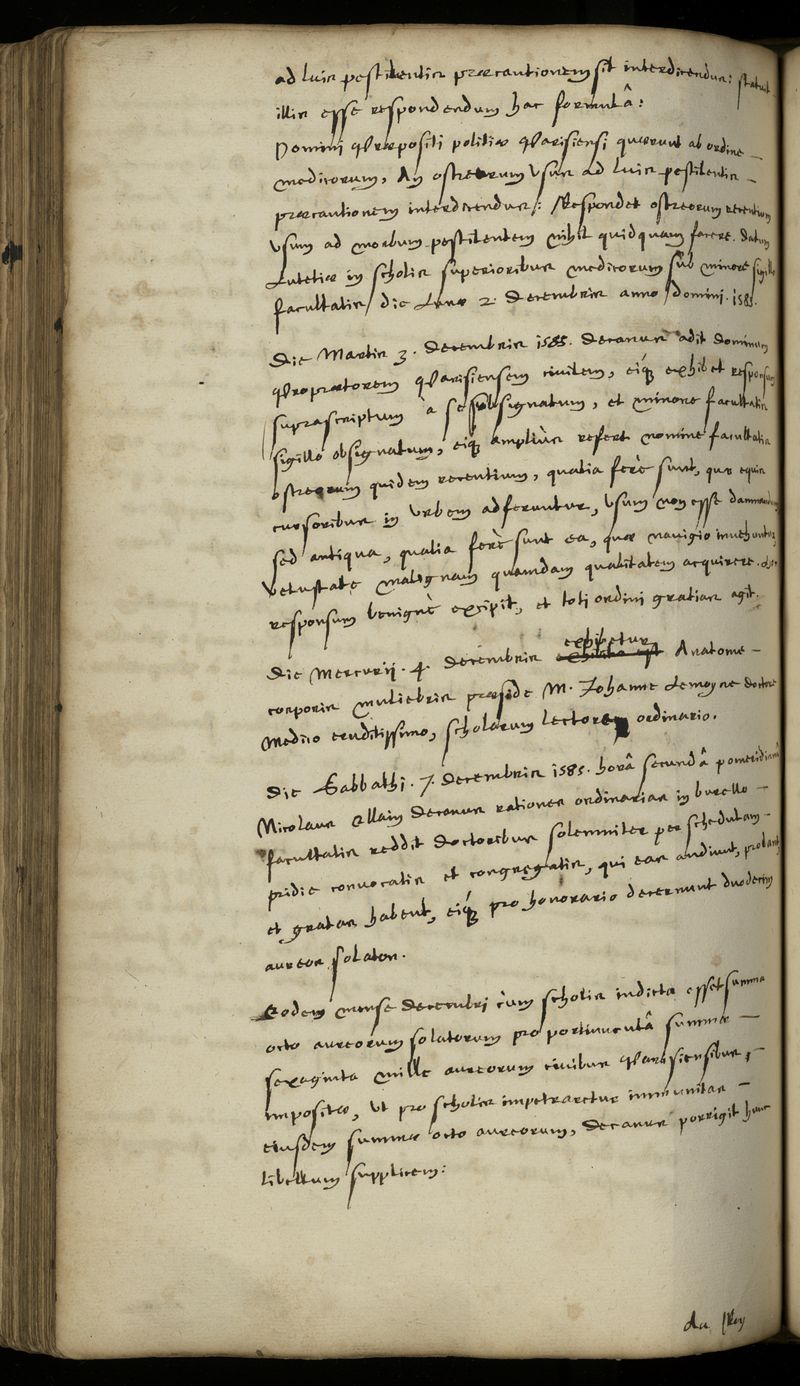 ad luis pestilentis præcautionem sit interdicendus: statuit
illis esse respondendum hac formulâ:
Domini Præpositi politiæ Parisiensi quærunt ab ordine
medicorum, An ostreorum Vsus ad luis pestilentis
præcautionem interdicendus: Respondet ostreorum recentium
Vsum ad morbum pestilentem nihil quidquam facere. datum
Lutetiæ in scholis superioribus medicorum sub minore sigillo
facultatis, die Lunæ 2. decembris anno domini. 1585.
Die Martis 3. decembris 1585. decanus adit dominum
Propraetorem Parisiensem civilem, eiq́ exhibet responsum
suprascriptum à se subsignatum, et minore facultatis
sigillo obsignatum, eiq́ ampliùs refert nomine facultatis
ostreorum quidem recentium, qualia ferè sunt, quæ equis
cursoribus in Vrbem adferuntur, Vsum non esse damnandum
sed antiqua, qualia ferè sunt ea, quæ navigio invehuntur,
Vetustate malignam quamdam qualitatem acquirere.
responsum benignè excipit, et toti ordini gratias agit.
Die Mercurij. 4. decembris exhibetur Anatome
corporis muliebris præside M. Johanne Lemoyne doctore
Medico eruditissimo, scholarum lectore ordinario.
Die Sabbathi. 7. decembris 1585. horâ secundâ pomeridianâ
Nicolaus Ellain decanus rationes ordinarias in burello
facultatis reddit doctoribus solemniter per schedulam
pridie convocatis et congregatis, qui eas audiunt, probant,
et gratas habent, eiq́ pro honorario decernunt duodecim
aureos solatos.
Eodem mense decembri cùm scholis indicta esset summa
octo aureorum solatorum pro portiunculâ summæ
sexaginta mille aureorum civibus Parisiensibus
impositæ, Vt pro scholis impetraretur immunitas
eiusdem summæ octo aureorum, decanus porrigit hunc
libellum supplicem:
Au Roy